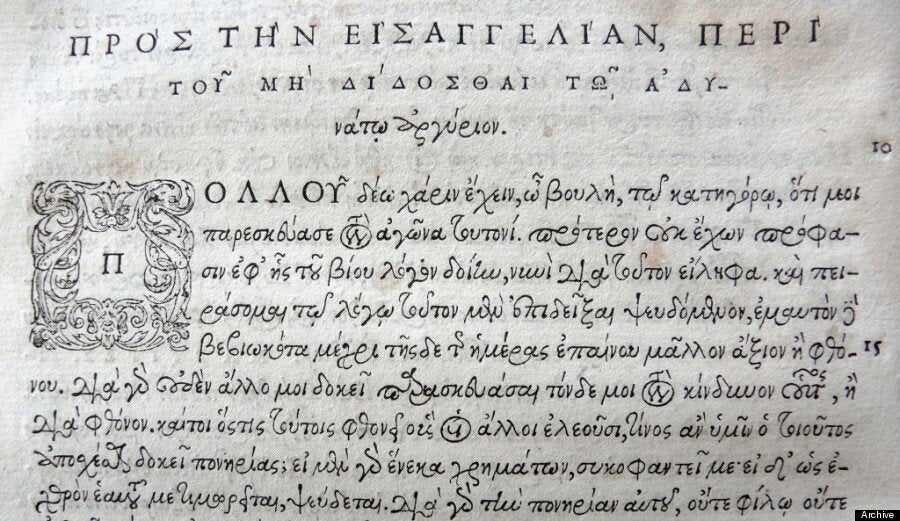 ΠΡῸΣ ΤῊΝ ΕἸΣΑΓΓΕΛΊΑΝ, ΠΕΡῚ
ΤΟΥ͂ ΜῊ ΔΊΔΟΣΘΑΙ ΤΩ͂Ι ἈΔΥ-
νάτῳ ἀργύριον.
10
ΠΟΛΛΟΥ͂ δέω χάριν ἔχειν, ὦ βουλὴ, τῷ κατηγόρῳ, ὅτι μοι
παρεσκεύασε τὸν ἀγῶνα τουτονί. πρότερον οὐκ ἔχων πρόφα-
σιν ἐφ' ἧς τοῦ βίου λόγον δοίην, νυνὶ διὰ τοῦτον εἴληφα. καὶ πει-
ράσομαι τῷ λόγῳ τοῦτον μὲν ἐπιδεῖξαι ψευδόμενον, ἐμαυτὸν δὲ
βεβιωκότα μέχρι τῆς δε τῆς ἡμέρας ἐπαίνου μᾶλλον ἄξιον ἢ φθό- 15
νου. διὰ γὰρ οὐδὲν ἄλλο μοι δοκεῖ παρασκευάσαι τόνδε μοι τὸν κίνδυνον οὗτος, ἢ
διὰ φθόνον. καίτοι ὅστις τούτοις φθονεῖ οὓς οἱ ἄλλοι ἐλεοῦσι, τίνος ἂν ὑμῖν ὁ τοιοῦτος
ἀποσχέσθαι δοκεῖ πονηρίας; εἰ μὲν γὰρ ἕνεκα χρημάτων, συκοφαντεῖ με· εἰ δ' ὡς ἐ-
χθρὸν ἑαυτοῦ με τιμωρεῖται, ψεύδεται. διὰ γὰρ τὴν πονηρίαν αὐτοῦ, οὔτε φίλῳ οὔτε
Archive